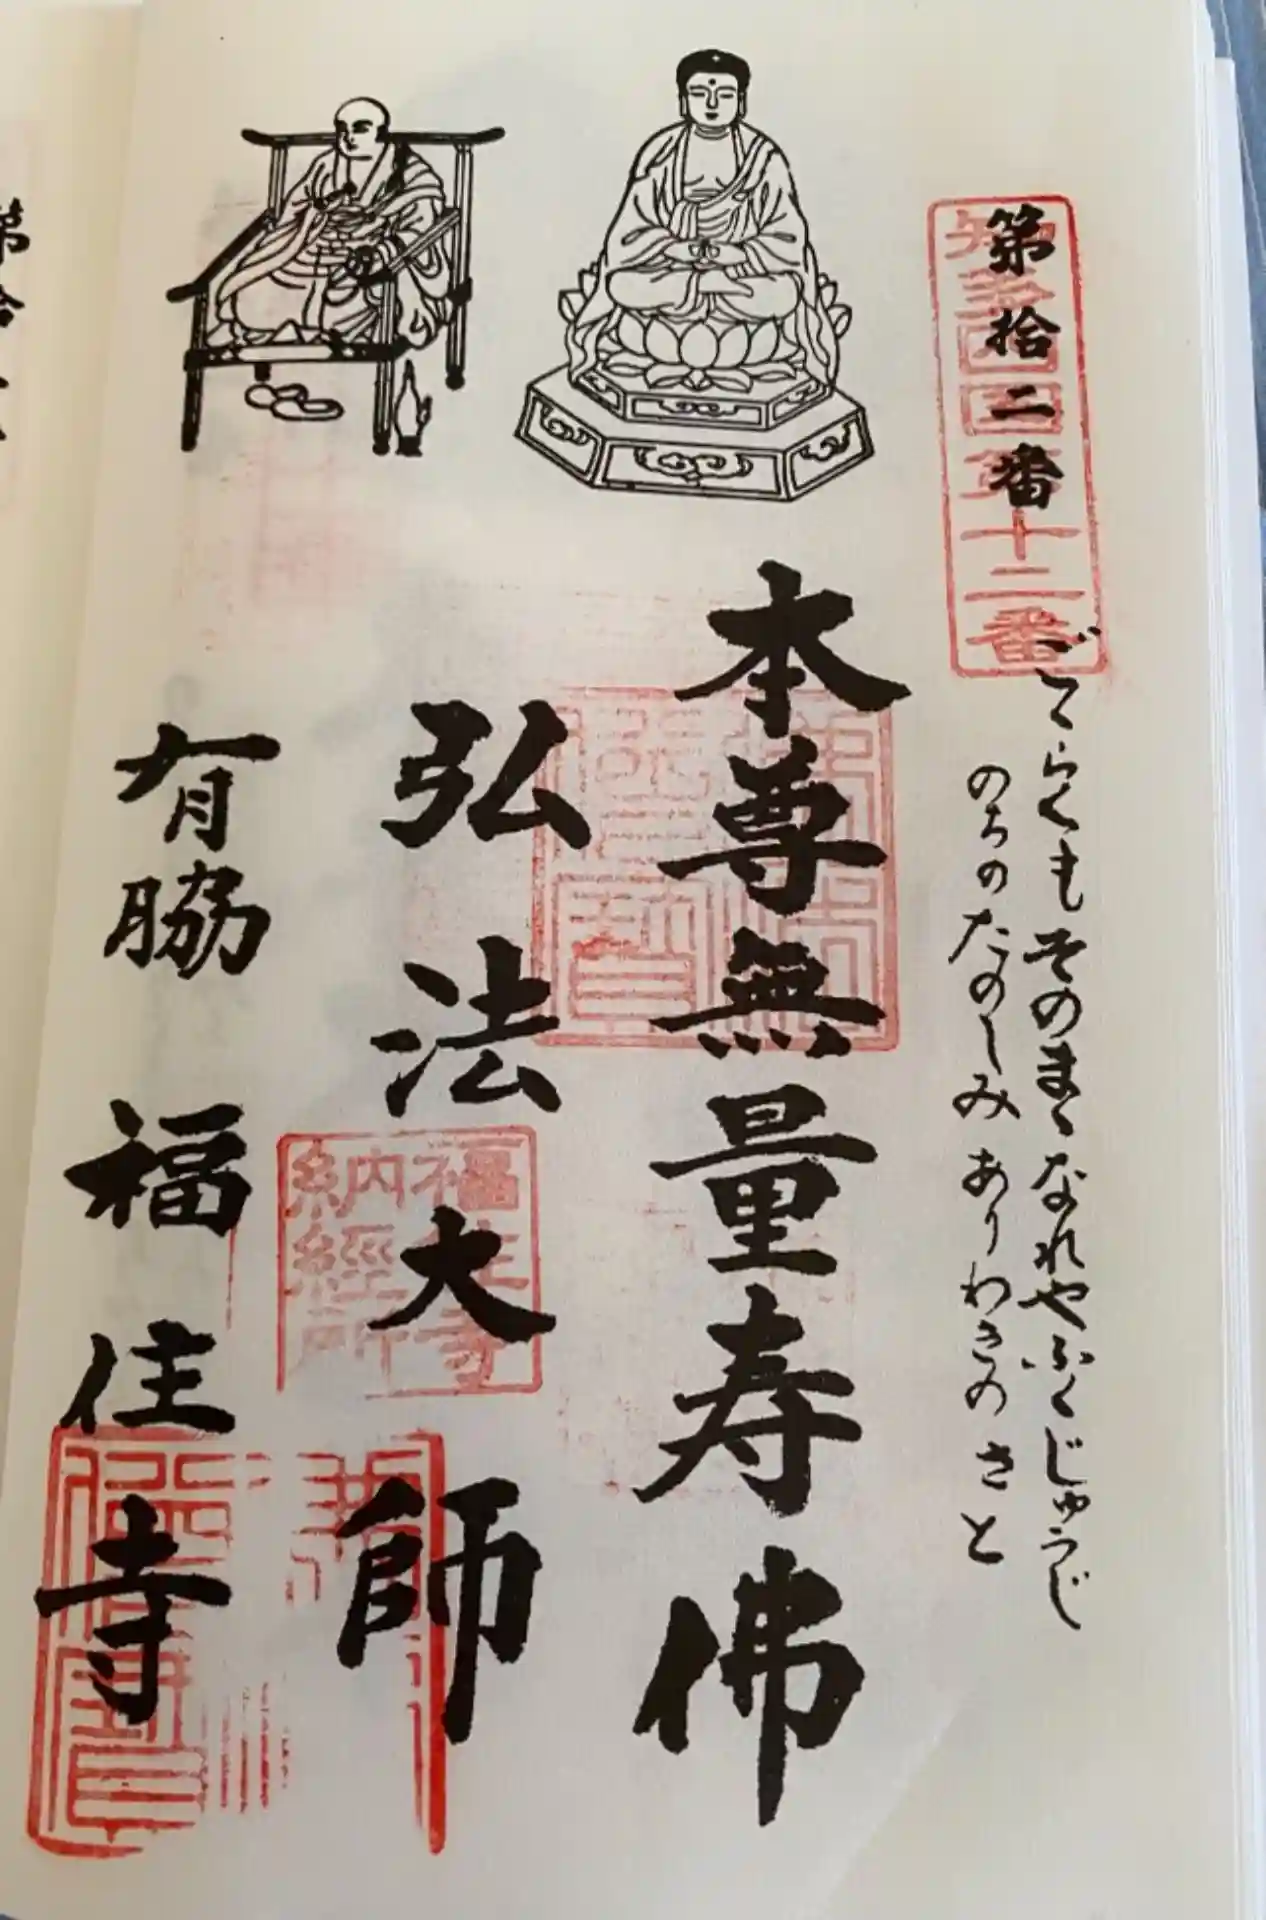 第拾二番
知多四国第十二番
ごくらくもそのまゝなれやふくじゅうじ
のちのたのしみありわきのさと
本尊無量寿佛
弘法大師
福住寺
納経所
有脇 福住寺